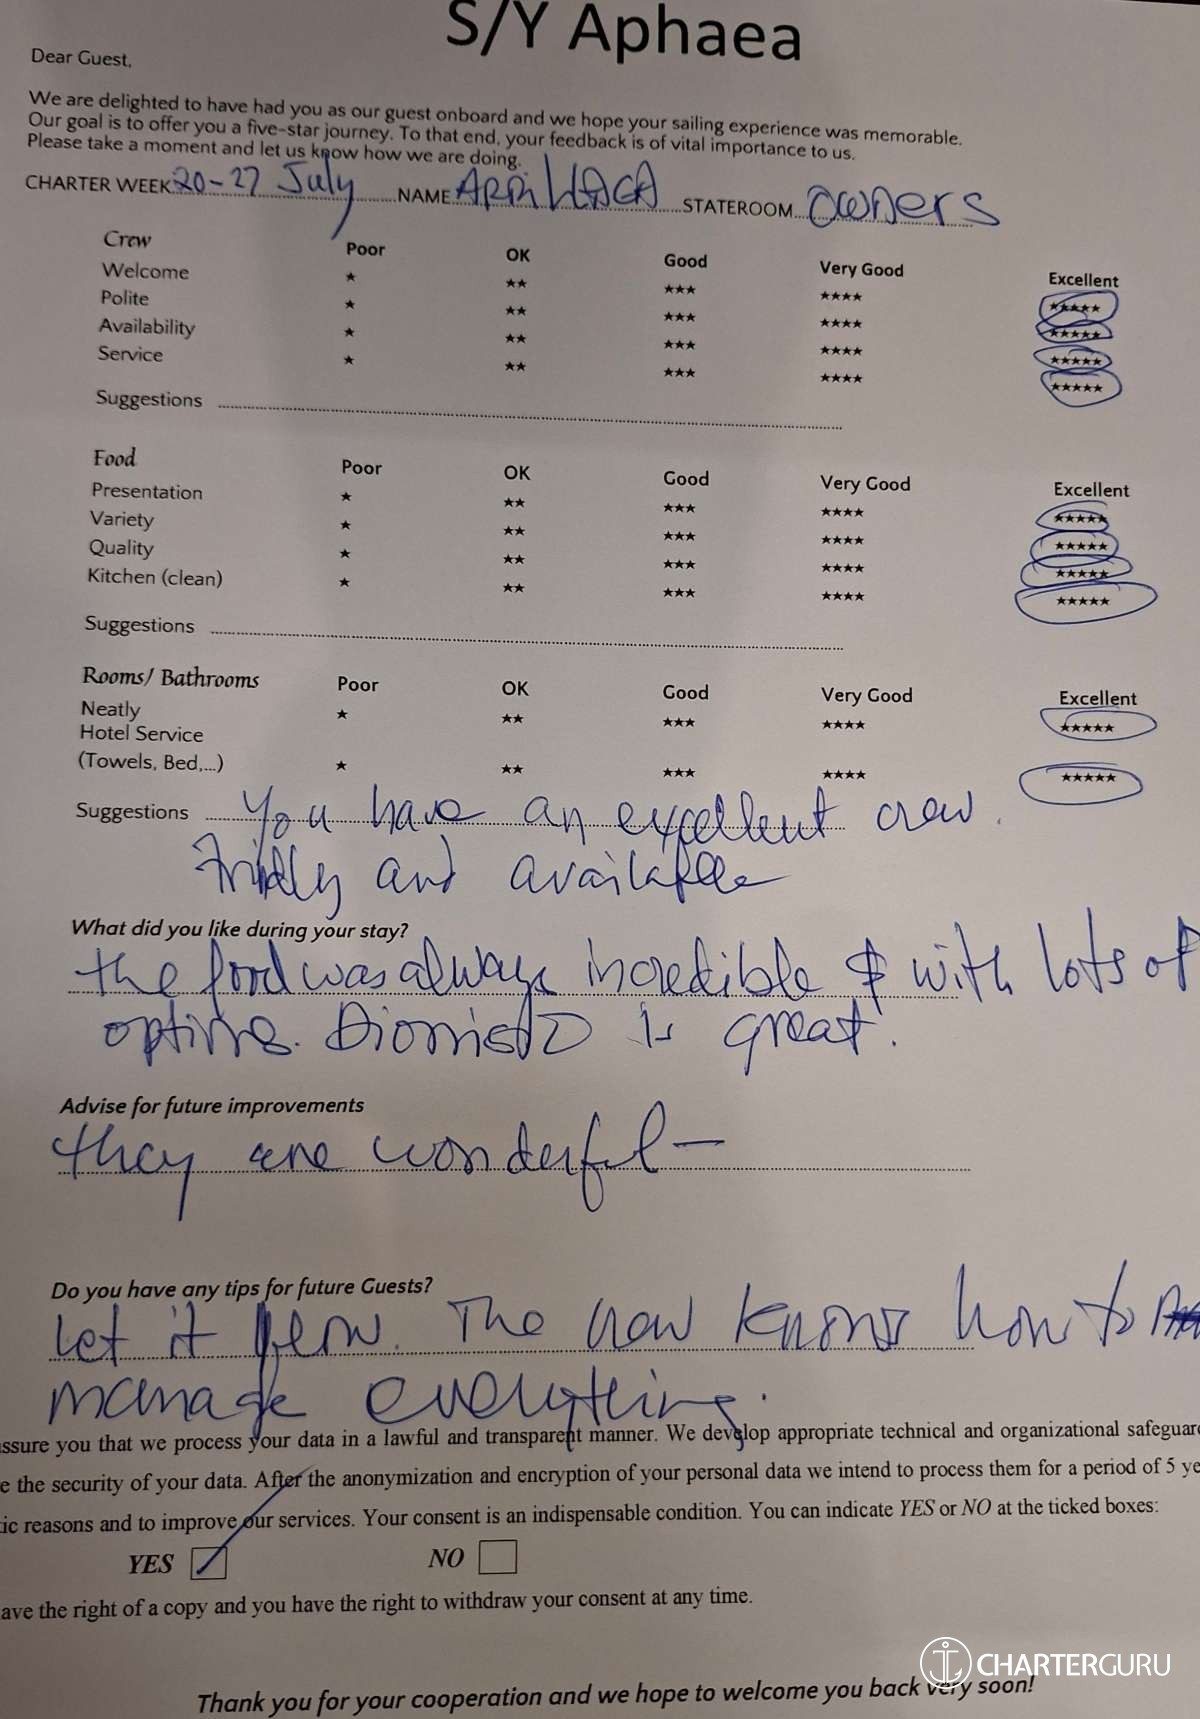 S/Y Aphaea
Dear Guest,
We are delighted to have had you as our guest onboard and we hope your sailing experience was memorable.
Our goal is to offer you a five-star journey. To that end, your feedback is of vital importance to us.
Please take a moment and let us know how we are doing.
CHARTER WEEK 20-27 July NAME STATEROOM owners
Crew Poor OK Good Very Good Excellent
Welcome ★ ★★ ★★★ ★★★★ ★★★★★
Polite ★ ★★ ★★★ ★★★★ ★★★★★
Availability ★ ★★ ★★★ ★★★★ ★★★★★
Service ★ ★★ ★★★ ★★★★ ★★★★★
Suggestions
Food Poor OK Good Very Good Excellent
Presentation ★ ★★ ★★★ ★★★★ ★★★★★
Variety ★ ★★ ★★★ ★★★★ ★★★★★
Quality ★ ★★ ★★★ ★★★★ ★★★★★
Kitchen (clean) ★ ★★ ★★★ ★★★★ ★★★★★
Suggestions
Rooms/ Bathrooms Poor OK Good Very Good Excellent
Neatly ★ ★★ ★★★ ★★★★ ★★★★★
Hotel Service
(Towels, Bed,...) ★ ★★ ★★★ ★★★★ ★★★★★
Suggestions You have an excellent crew.
and available
What did you like during your stay?
the food was always incredible & with lots of
options. is great.
Advise for future improvements
they are wonderful -
Do you have any tips for future Guests?
Let it flow. The crew knows how to
manage everything.
ssure you that we process your data in a lawful and transparent manner. We develop appropriate technical and organizational safeguar
e the security of your data. After the anonymization and encryption of your personal data we intend to process them for a period of 5 ye
ic reasons and to improve our services. Your consent is an indispensable condition. You can indicate YES or NO at the ticked boxes:
YES NO
ave the right of a copy and you have the right to withdraw your consent at any time.
CHARTERGURU
Thank you for your cooperation and we hope to welcome you back very soon!